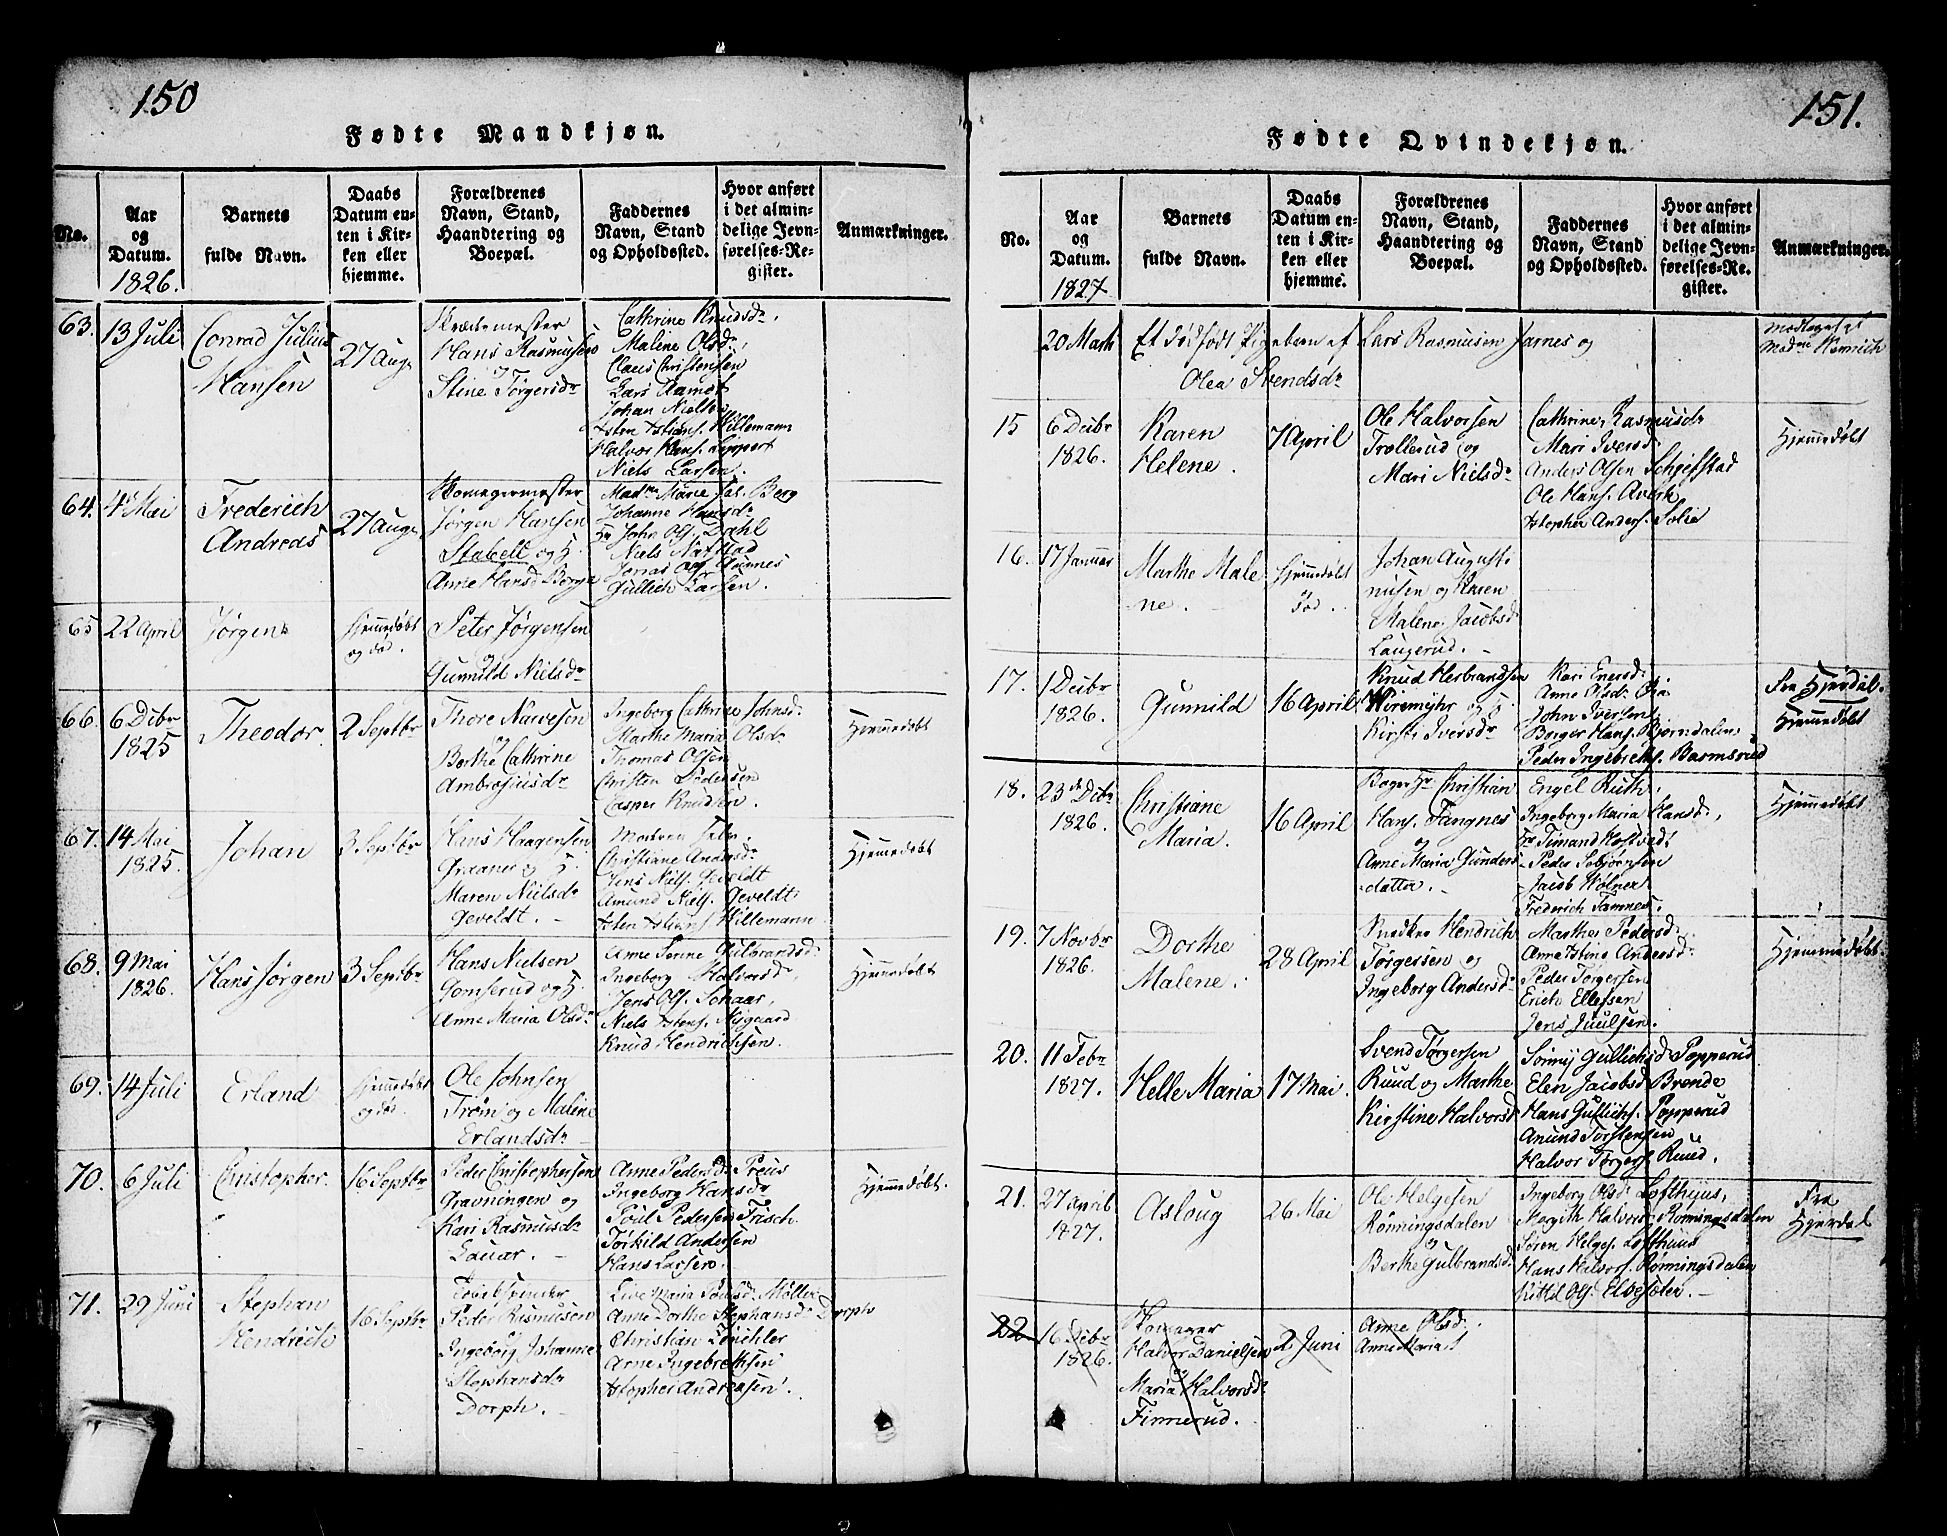 150
Fødte Mandkjøn.
No.
Aar
og
Datum.
1826.
Barnets
fulde Navn.
Daabs
Datum en-
ten i Kir-
ken eller
hjemme.
Forældrenes
Navn, Stand,
Haandtering og
Boepæl.
Faddernes
Navn, Stand
og Opholdssted.
Hvor anført
i det almin-
delige Jevn-
førelses-Re-
gister.
Anmærkninger.
63.
13 Juli
Conrad Julius
Hansen
27 Aug
Hans Rasmussen
og
Stine Torgersdr
Cathrine Knudsdr,
Malene Olsdr,
Claus Christensen
Lars
Johan Nielsen
Hillemann
Halvor Hans. Lippert
Niels Larsen.
64.
4 Mai
Frederich
Andreas
27 Aug
Jørgen Hansen
Stabell og H.
Anne Hansd Borge
Madme Marie Berg
Johanne Hansdr
Hr John Ols. Dahl
Niels Narstad
Jonas Aamnes
Gullich Larsen.
65
22 April
Jørgen
Hjemmedøbt
og død.
Peter Jørgensen
og
Gunnild Nielsdr
66.
6 Dcbr
1825
Theodor.
2 Septbr
Thore Narvesen
og
Berthe Cathrine
Ambrosiusdr
Ingeborg Cathrine Johnsd.
Marthe Maria Olsdr
Thomas Olsen
Christen Pedersen
Casper Knudsen.
Hjemmedøbt
67.
14 Mai
1825
Johan
3 Septbr
Hans Haagensen
Graaner og H.
Maren Nielsdr
Geveldt. -
Christiane Andersdr
Jens Niels. Geveldt
Amund Niels. Geveldt
Hillemann
Hjemmedøbt
68.
9 Mai
1826.
Hans Jørgen
3 Septbr
Hans Nielsen
Gomserud og H.
Anne Maria Olsdr
Anne Gulbrandsd.
Ingeborg Halvorsdr
Jens Ols. Schaar,
Niels Nygaard
Knud Hendrichsen.
Hjemmedøbt
69.
14 Juli
Erland
Hjemmedøbt
og død.
Ole Johnsen
Trøim og Malene
Erlandsdr
70.
6 Juli
Christopher.
16 Septbr
Peder Christophersen
Gravningen og
Kari Rasmusdr
Lauar. -
Anne Pedersdr Preus
Ingeborg Hansdr
Poul Pedersen Frisch
Torkild Andersen
Hans Larsen.
Hjemmedøbt.
71.
29 Juni
Stephan
Hendrich
16 Septbr
Peder Rasmusen
Ingeborg Johanne
Stephansdr
Dorph. -
Live Maria Povlsd. Møller
Anne Dorthe Stephansdr Dorph
Christian Büchler
Arne Ingebrethsen
Andreasen.
151.
Fødte Qvindekjøn.
No.
Aar
og
Datum.
1827
Barnets
fulde Navn.
Daabs
Datum en-
ten i Kir-
ken eller
hjemme.
Forældrenes
Navn, Stand,
Haandtering og
Boepæl.
Faddernes
Navn, Stand
og Opholdssted.
Hvor anført
i det almin-
delige Jevn-
førelses-Re-
gister.
Anmærkninger.
20 Marts
Et dødfødt Pigebarn af Lars Rasmusen Jarnes og
Olea Svendsdr
15
6 Dcbr
1826.
Karen
Helene.
7 April
Ole Halvorsen
Trollerud og
Mari Nielsdr
Cathrine Rasmusdr
Mari Iversd.
Anders Olsen Schjefstad
Ole Hans. Averk
Anders. Solie
Hjemmedøbt
16.
17 Januar
Marthe Male
ne. -
Hjemmedøbt
og
død.
Johan Augusti
nusen og Karen
Malene Jacobsdr
Laugerud. -
17.
1 Dcbr
1826.
Gunnild
16 April
Knud Herbrandsen
Wiremyhr og H.
Kirsti Iversdr
Kari Enersd.
Anne Olsdr
John Iversen
Borger Hans. Bjørndalen
Peder Ingebreths. Barmsrud
Fra Hjerdal.
Hjemmedøbt
18.
23 Dcbr
1826.
Christiane
Maria.
16 April
Bager Hr Christian
Hans. Fangnes
og
Anne Maria Gunders
datter. -
Engel Ruth,
Ingeborg Maria Hansd.,
Peder Sebjørnsen
Jacob Wølner
Frederich Tamnes.
Hjemmedøbt
19.
7 Novbr
1826.
Dorthe
Malene.
28 April
Snedker Hendrich
Torgersen og
Ingeborg Andersdr
Marthe Pedersd.
Andersdr
Peder Torgersen
Erich Ellefsen
Jens Juulsen.
Hjemmedøbt.
20.
11 Febr
1827.
Helle Maria
17 Mai.
Svend Torgersen
Ruud og Marthe
Kirstine Halvorsd
Gullichsdr Popperud
Elen Jacobsd Brende
Hans Gullichs. Popperud
Anund Torstensen
Halvor Torgers. Ruud.
21.
27 April
1827.
Asloug
26 Mai
Ole Helgesen
Rønningsdalen
og
Berthe Gulbrandsd.
Ingeborg Olsdr Lofthuus,
Margith Halvors. Rønningsdalen
Søren Helges. Lofthuus
Hans Halvors. Rønningsdalen
Kittil Ols. Elvesæter. -
Fra
Hjerdal
22
16 Dcbr
1826.
Halvor Danielsen
Maria Halvorsdr
Finnerud.
2 Juni
Anne Olsd.
Anne Maria